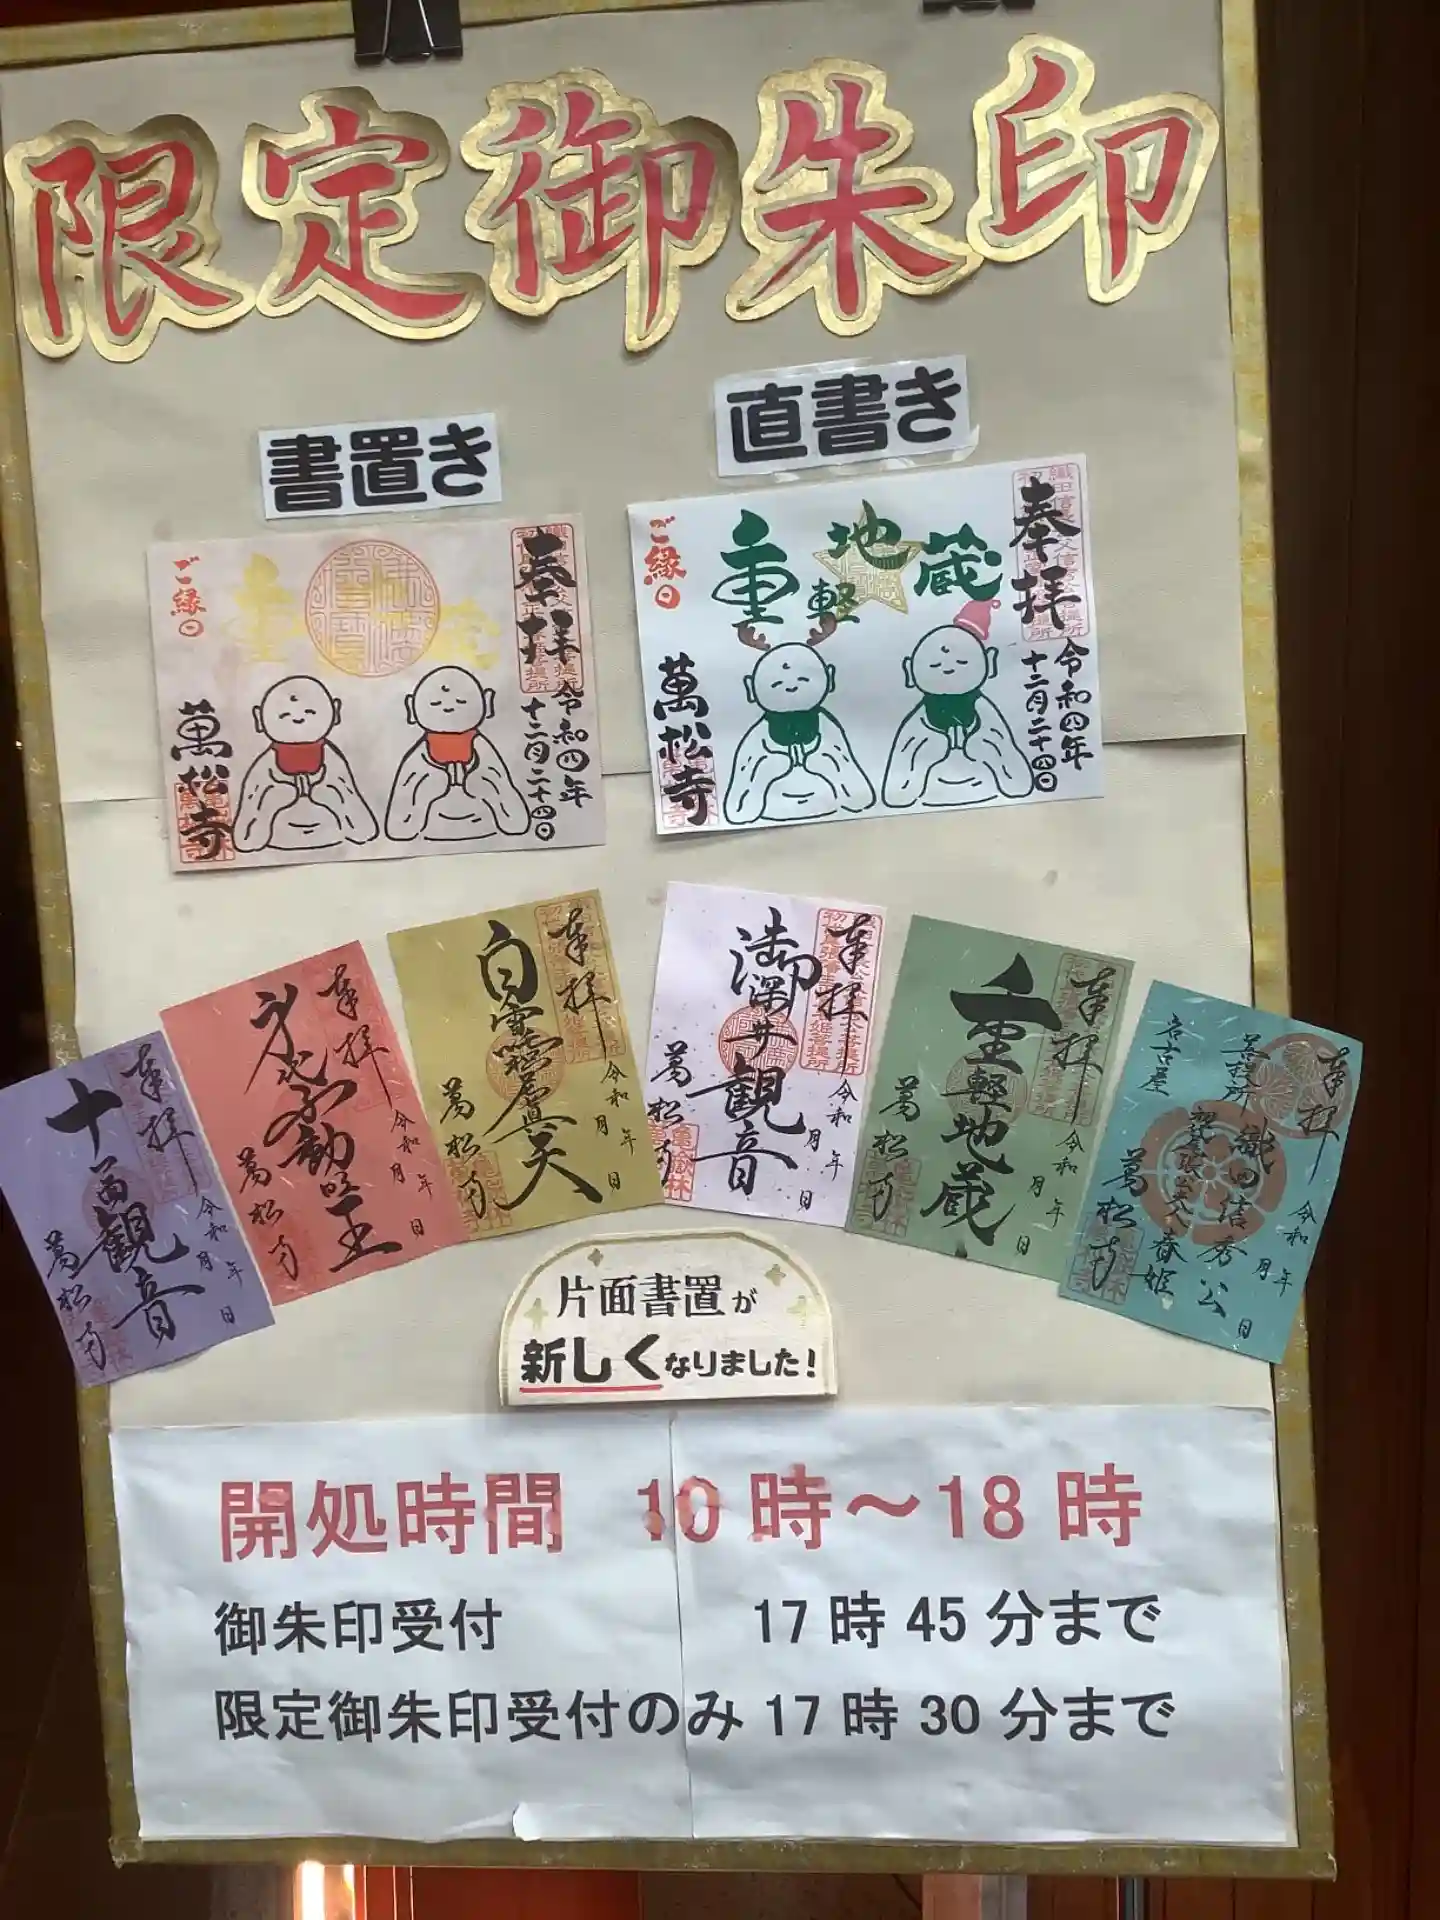 限定御朱印
書置き
直書き
奉拝
令和四年
十二月二十四日
重
蔵
ご縁日
萬松寺
奉拝
令和四年
十二月二十四日
重軽地蔵
ご縁日
萬松寺
奉拝
十一面観音
令和 年 月 日
萬松寺
奉拝
不動明王
令和 年 月 日
萬松寺
奉拝
白雪稲荷眞天
令和 年 月 日
萬松寺
奉拝
御深井観音
令和 年 月 日
萬松寺
亀嶽林
奉拝
重軽地蔵
令和 年 月 日
萬松寺
奉拝
織田信秀公
春姫
菩提所
名古屋
令和 年 月 日
萬松寺
片面書置が
新しくなりました!
開処時間 10時～18時
御朱印受付 17時45分まで
限定御朱印受付のみ 17時30分まで